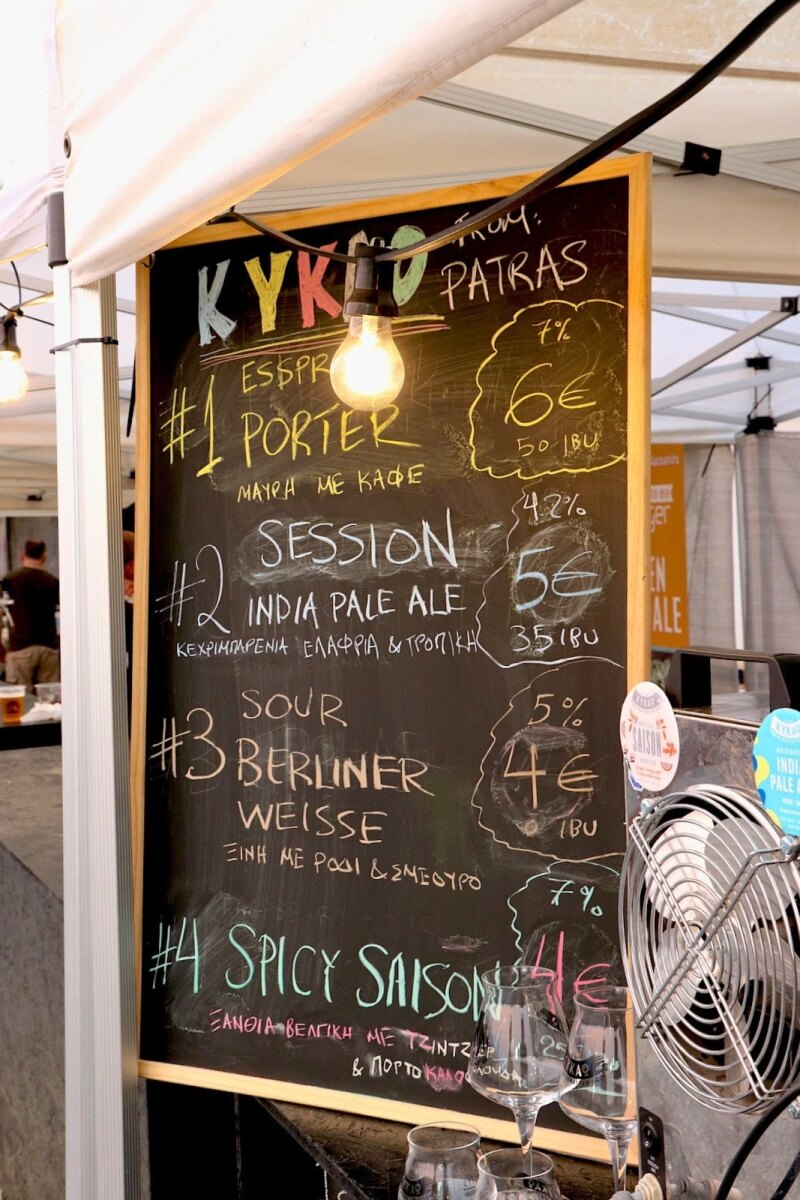 KYKAO
FROM:
PATRAS
#1
PORTER
ΜΑΥΡΗ ΜΕ ΚΑΦΕ
7%
6€
50 IBU
#2
SESSION
INDIA PALE ALE
ΚΕΧΡΙΜΠΑΡΕΝΙΑ ΕΛΑΦΡΙΑ & ΤΡΟΠΙΚΗ
4.2%
5€
35 IBU
#3
SOUR
BERLINER
WEISSE
ΞΙΝΗ ΜΕ ΡΟΔΙ & ΣΜΕΟΥΡΟ
5%
4€
IBU
#4 SPICY SAISON
ΞΑΝΘΙΑ ΒΕΛΓΙΚΗ ΜΕ ΤΖΙΝΤΖΕΡ
& ΠΟΡΤΟΚΑΛΟΦΛΟΥΔΑ
7%
4€
SAISON
KYKAO
SESSION
INDIA
PALE
ALE